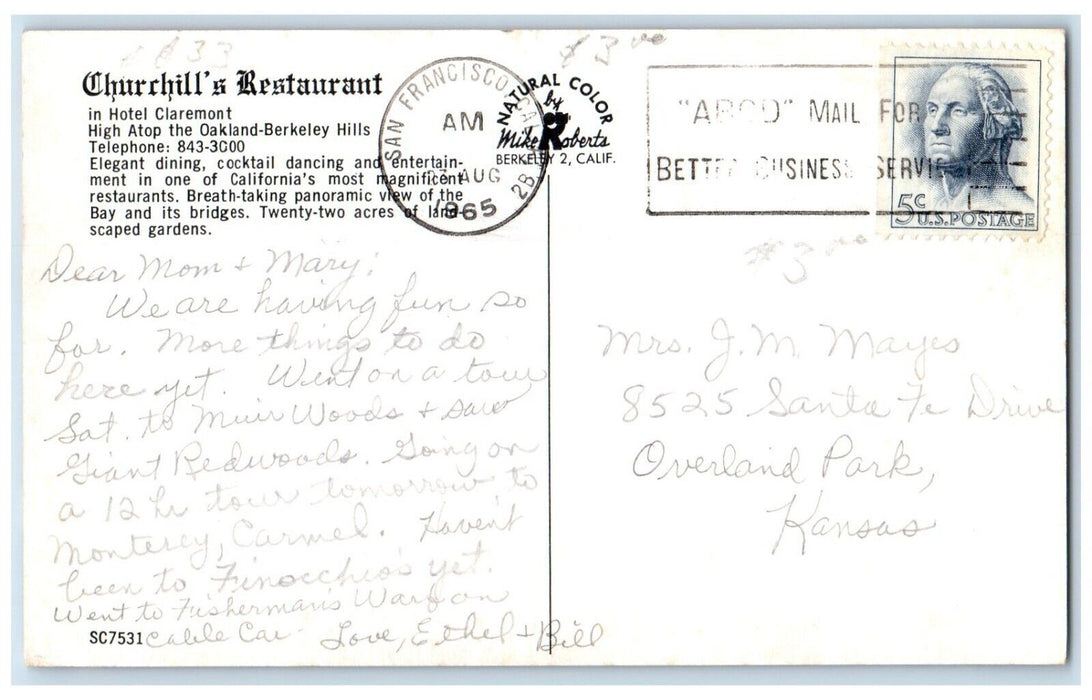 6833
$3.00
Churchill's Restaurant
in Hotel Claremont
High Atop the Oakland-Berkeley Hills
Telephone: 843-3000
Elegant dining, cocktail dancing and entertain-
ment in one of California's most magnificent
restaurants. Breath-taking panoramic view of the
Bay and its bridges. Twenty-two acres of land-
scaped gardens.
SAN FRANCISCO, CALIF.
AM
AUG
1965
2B
NATURAL COLOR
by
Mike Roberts
BERKELEY 2, CALIF.
"ABCD" MAIL FOR
BETTER BUSINESS SERVICE
5c
U.S. POSTAGE
$3.00
Dear Mom & Mary:
We are having fun so
far. More things to do
here yet. Went on a tour
Sat. to Muir Woods & saw
Giant Redwoods. Going on
a 12 hr tour tomorrow to
Monterey, Carmel. Haven't
been to Finocchio's yet.
Went to Fisherman's Warf on
Cable Car Love, Ethel & Bill
SC7531
Mrs. J. M. Mayes
8525 Santa Fe Drive
Overland Park,
Kansas